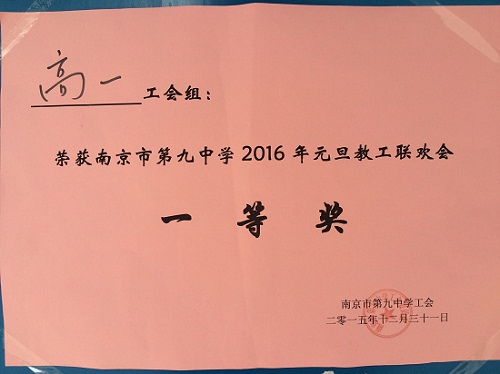 高一工会组：
荣获南京市第九中学2016年元旦教工联欢会
一等奖
南京市第九中学工会
二零一五年十二月三十一日